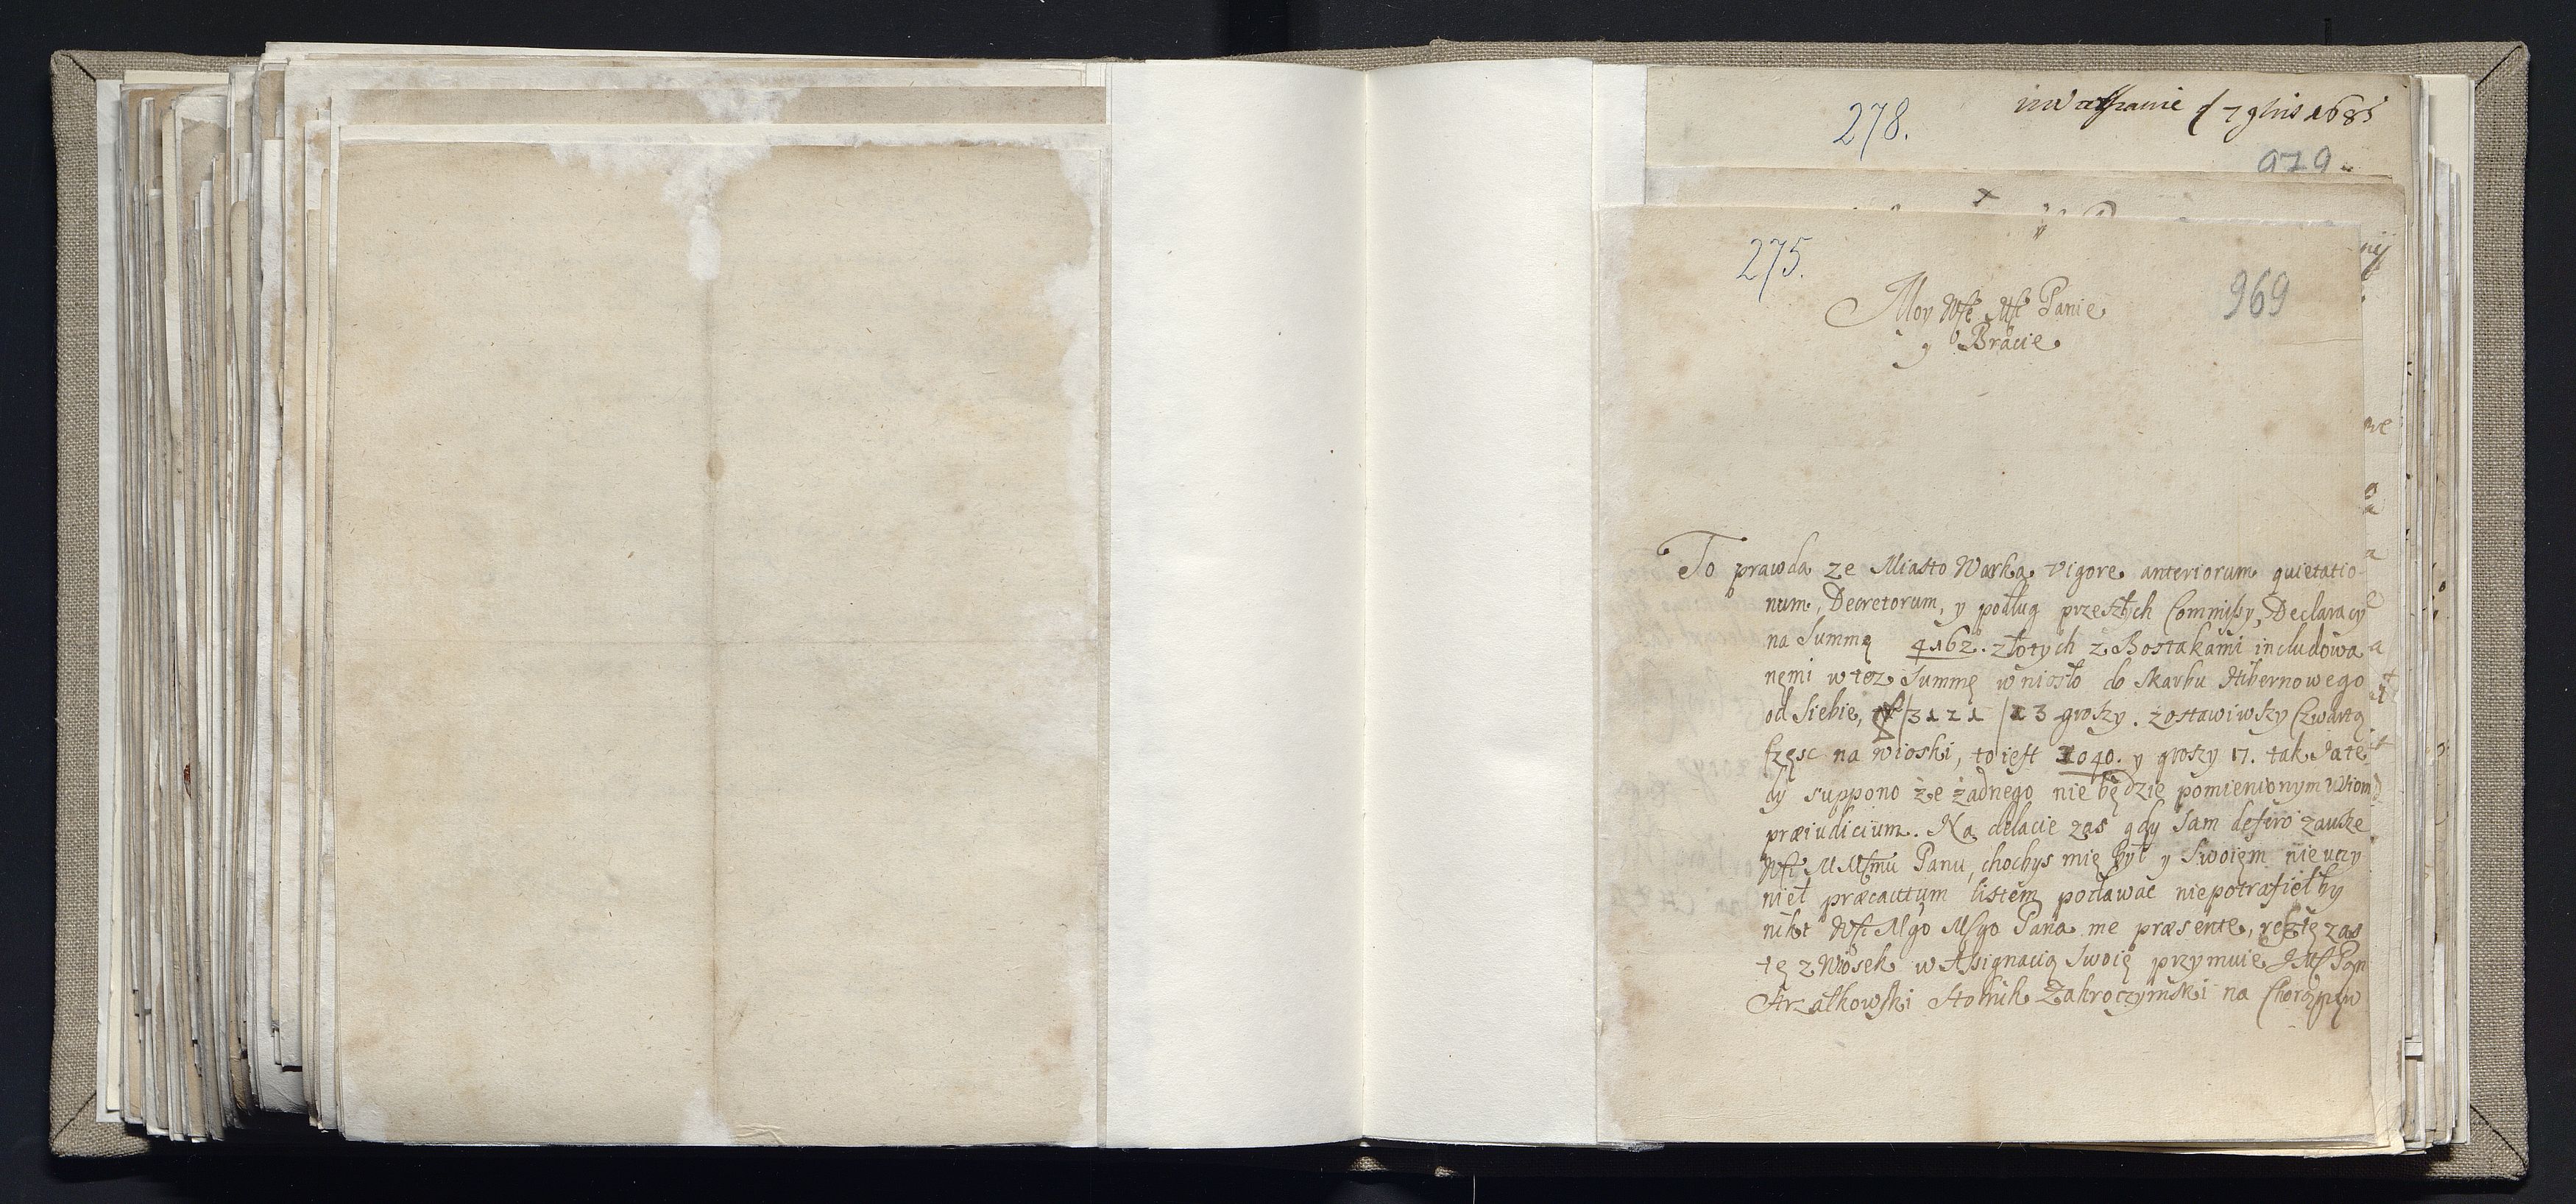 278.
7 9bris 1685
979
275.
969
Moy Mśc Mśc Panie
y Bracie
To prawda ze Miasto Warka vigore anteriorum quietatio
num, Decretorum, y podług przeszłych Commissy, Declaracy
na Summę 4162. złotych z Bostakami includowa
nemi w tez Summę wniosło do Skarbu Hibernowego
od siebie, 3121 / 13 groszy. zostawiwszy Czwartą
częsc na wioski, to iest 1040. y groszy 17. tak Ia te
dy suppono że żadnego nie będzie pomienionym Wiom
præiudicium. Na delacie zas gdy sam defero zawsze
Panu, chocbys mię był y Swoięm nie uczy
nieł præcautum listem podawac niepotrafiełby
nikt Pana me præsente, resztę zas
tę z Wiosek w Assignacią Swoię przymuie JMP Pan
Strzałkowski Stolnik Zakroczymski na Chorągiew